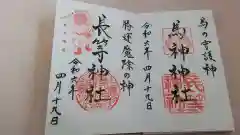 馬の守護神
馬神神社
令和六年四月十九日
勝運魔除の神
長等神社
令和六年
四月十九日